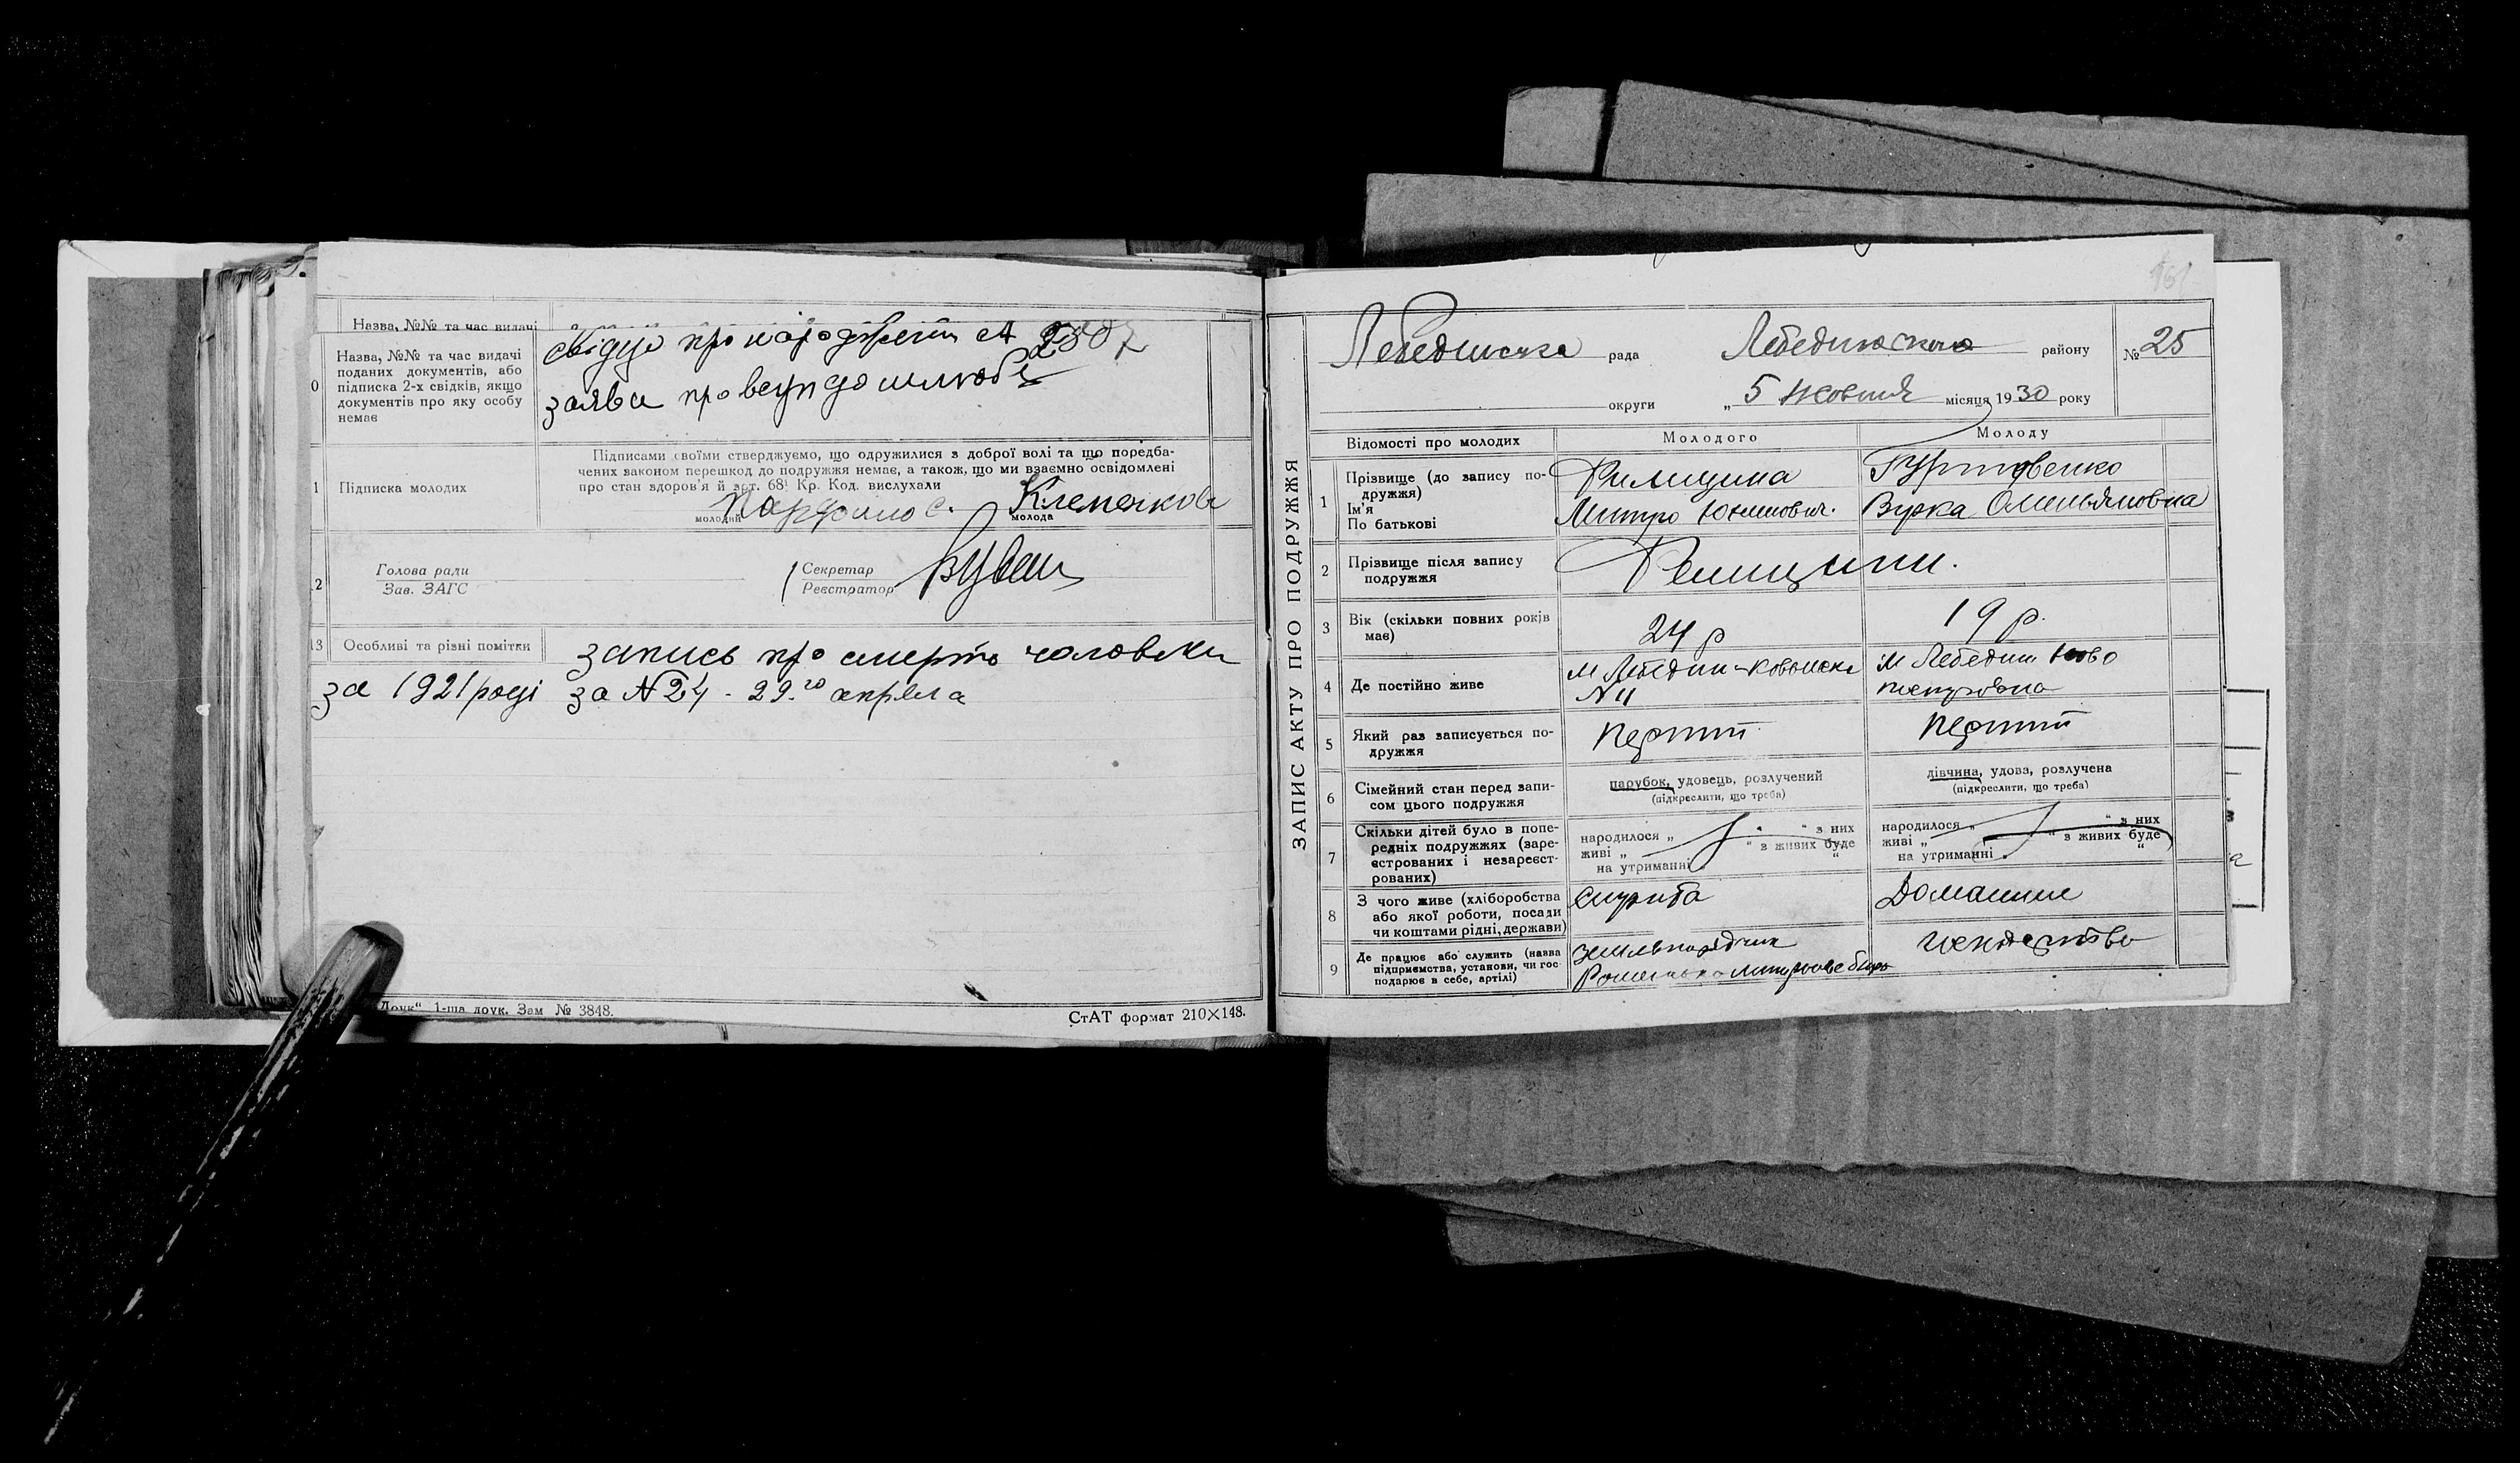 Назва, №№ та час видачі
0
Назва, №№ та час видачі
поданих документів, або
підписка 2-х свідків, якщо
документів про яку особу
немає
свідцо про народження
заява про вступ до шлюбу
1
Підписка молодих
Підписами своїми стверджуємо, що одружилися з доброї волі та що передба-
чених законом перешкод до подружжя немає, а також, що ми взаємно освідомлені
про стан здоров'я й арт. 68¹ Кр. Код. вислухали
молодий
молода
2
Голова ради
Зав. ЗАГС
Секретар
Реєстратор
13
Особливі та різні помітки
запись про смерть чоловіка
за 1921 році за N 24 - 29.го апреля
Друк" 1-ша друк. Зам № 3848.
СтАТ формат 210×148.
161
ЗАПИС АКТУ ПРО ПОДРУЖЖЯ
Лебединська рада Лебединського району № 25
округи „ 5 жовтня місяця 1930 року
Відомості про молодих
Молодого
Молоду
1
Прізвище (до запису по-
дружжя)
Ім'я
По батькові
Митро
Олельяновна
2
Прізвище після запису
подружжя
3
Вік (скільки повних років
має)
24 р
19 р.
4
Де постійно живе
м Лебедин
N 11
м Лебедин Ново
5
Який раз записується по-
дружжя
Перший
Перший
6
Сімейний стан перед запи-
сом цього подружжя
парубок, удовець, розлучений
(підкреслити, що треба)
дівчина, удова, розлучена
(підкреслити, що треба)
7
Скільки дітей було в попе-
редніх подружжях (заре-
єстрованих і незареєст-
рованих)
народилося „ " з них
живі „ " з живих буде
на утриманні "
народилося „ " з них
живі „ " з живих буде
на утриманні "
8
З чого живе (хліборобства
або якої роботи, посади
чи коштами рідні, держави)
служба
Домашнє
9
Де працює або служить (назва
підприємства, установи, чи гос-
подарює в себе, артілі)
землевпорядчик
господарство